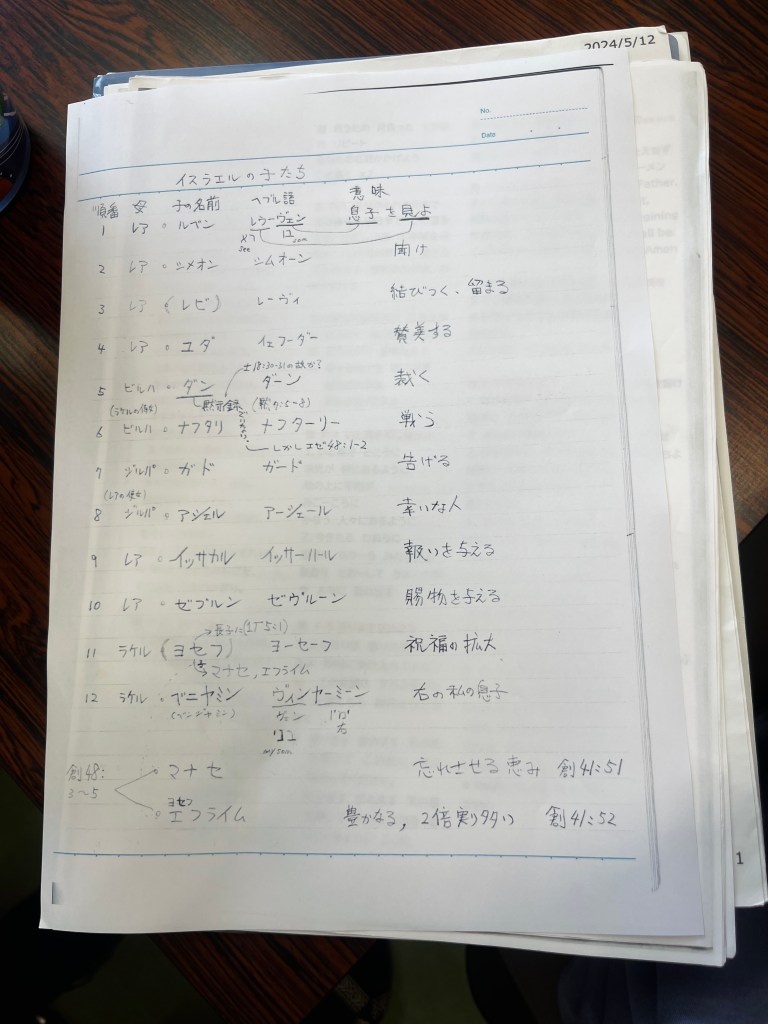 2024/5/12
No.
Date
イスラエルの子たち
順番 母 子の名前 ヘブル語 意味
1 レア ルベン レラーヴェン 息子を見よ
see son
2 レア シメオン シムオーン 聞け
3 レア (レビ) レーヴィ 結びつく、留まる
4 レア ユダ イェフーダー 賛美する
士18:30-31の故か?
5 ビルハ ダン ダーン 裁く
(ラケルの侍女) 黙示録 (黙7:5-8)
6 ビルハ ナフタリ ナフターリー 戦う
しかしエゼ48:1-2
7 ジルパ ガド ガード 告げる
(レアの侍女)
8 ジルパ アシェル アーシェール 幸いな人
9 レア イッサカル イッサーハール 報いを与える
10 レア ゼブルン ゼヴルーン 賜物を与える
長子に(1歴5:1)
11 ラケル (ヨセフ) ヨーセーフ 祝福の拡大
マナセ, エフライム
12 ラケル ベニヤミン ヴィンヤーミーン 右の私の息子
(ベンジャミン) 右
my son
創48:3~5
マナセ 忘れさせる恵み 創41:51
ヨセフ
エフライム 豊かなる, 2倍実り多い 創41:52
1